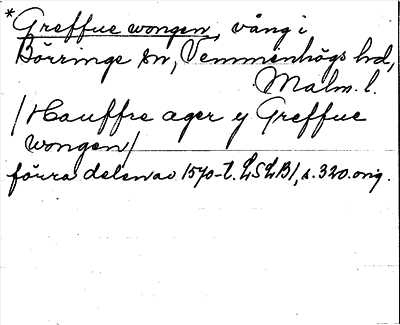 * Greffue wongen, vång i
Börringe sn, Vemmenhögs hd,
Malm. l.
/Hauffre ager y Greffue
wongen/
förra delen av 1570-t. LSLB1, s. 320. orig.